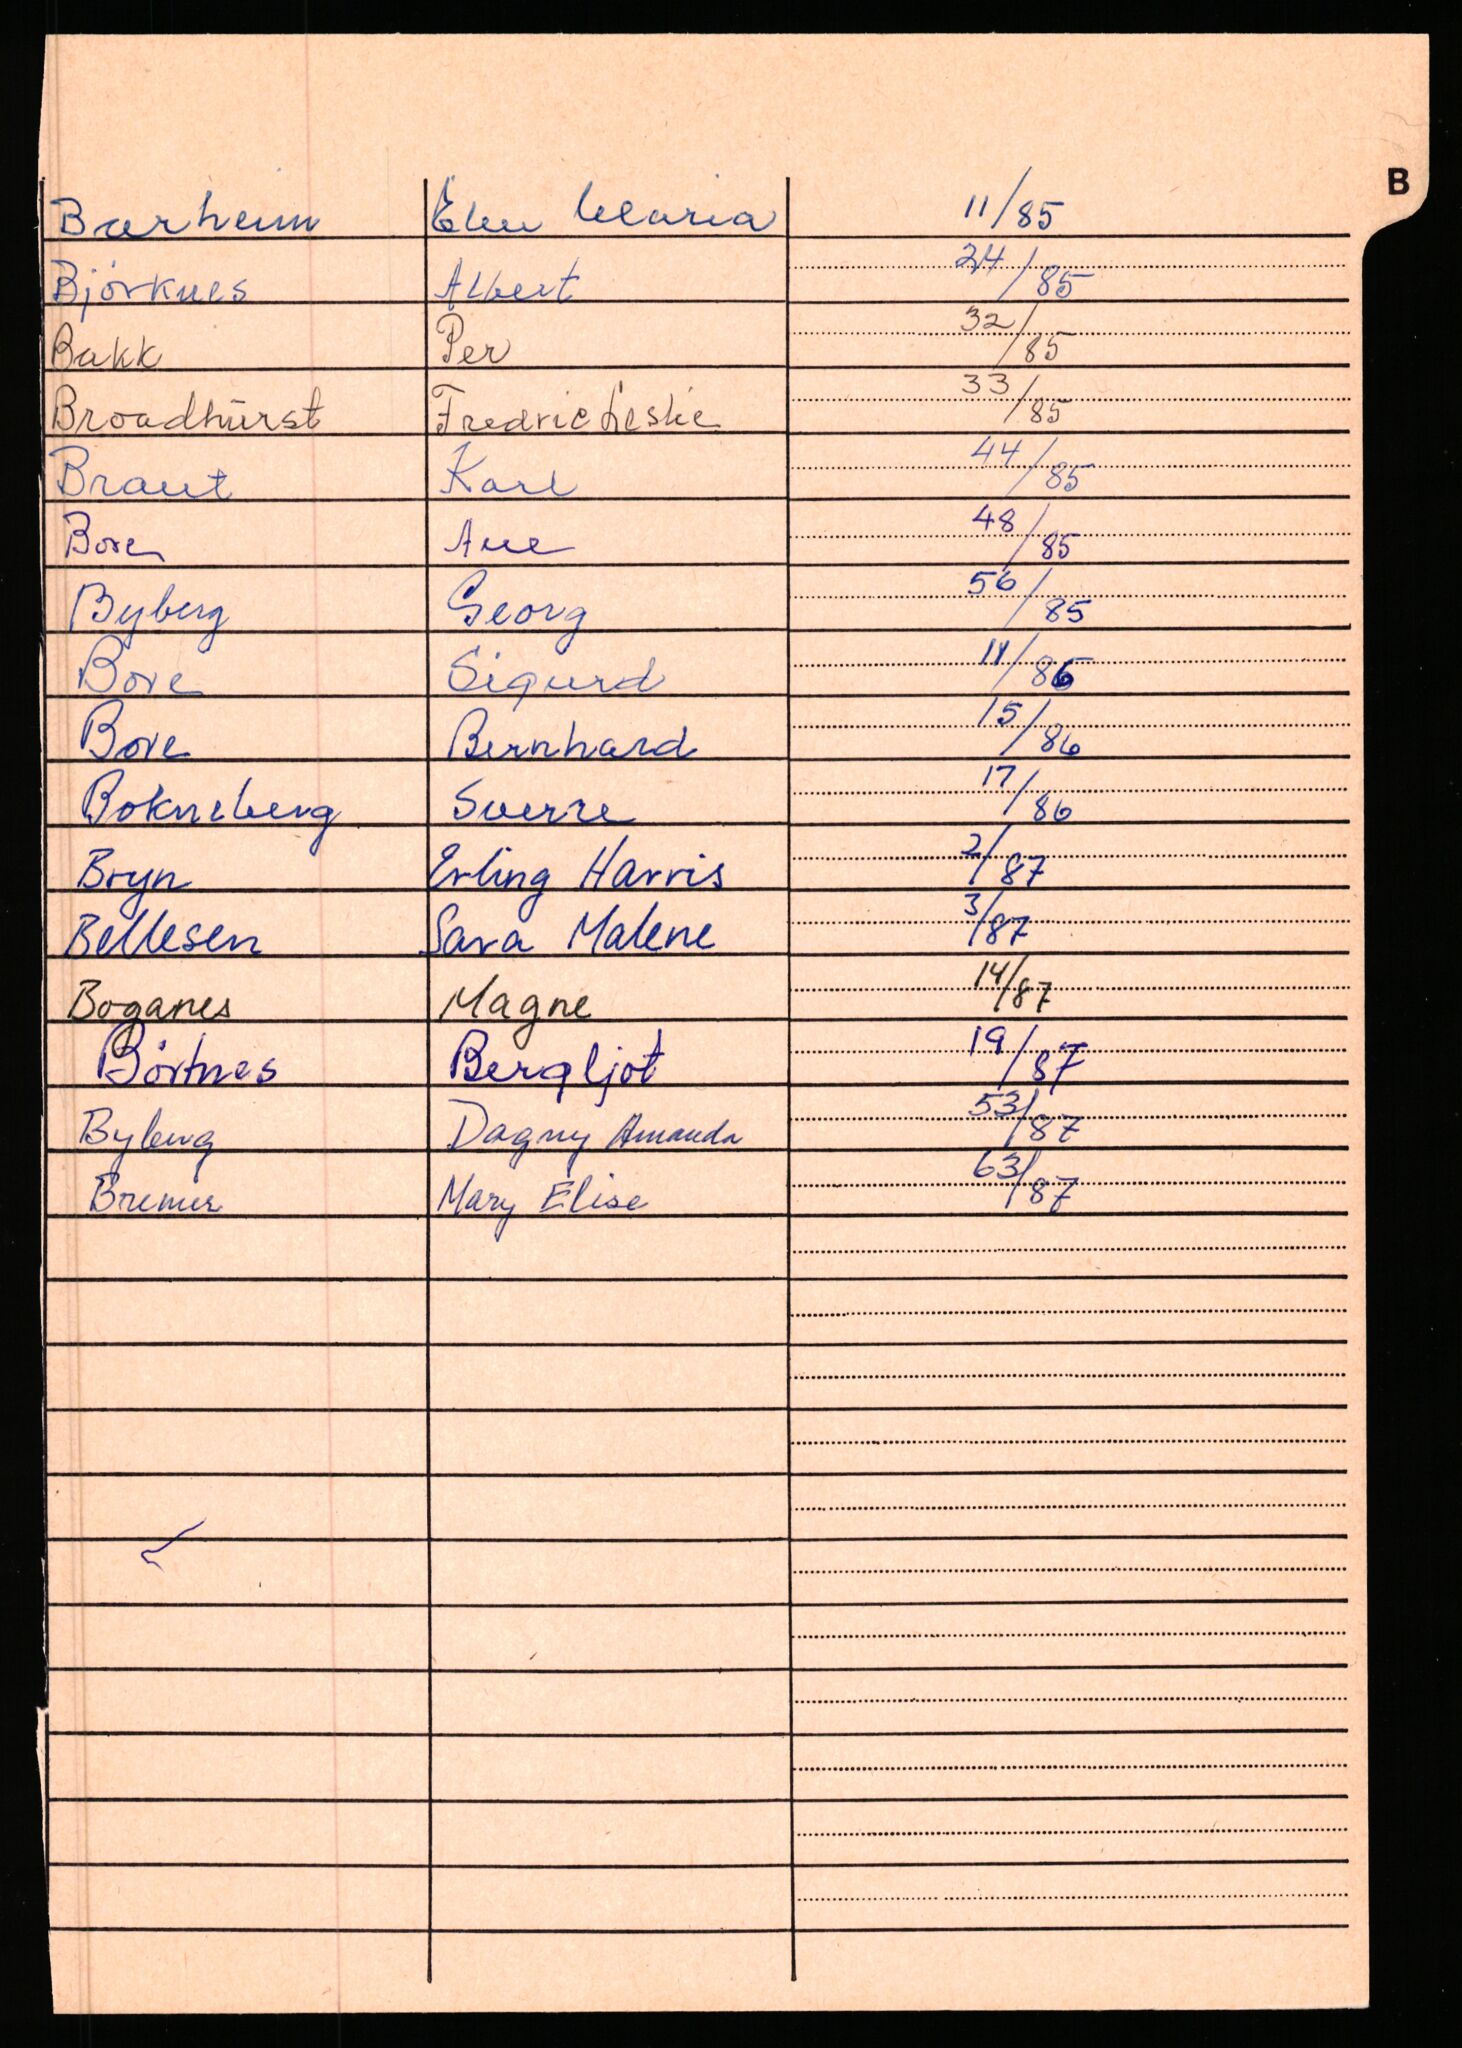 B
Bærheim Elen Maria 11/85
Bjørknes Albert 24/85
Bakk Per 32/85
Broadhurst Fredric Leslie 33/85
Braut Karl 44/85
Bore Ane 48/85
Byberg Georg 56/85
Bore Sigurd 11/86
Bore Bernhard 15/86
Bokneberg Sverre 17/86
Bryn Erling Harris 2/87
Bellesen Sara Malene 3/87
Boganes Magne 14/87
Børtnes Bergljot 19/87
Byberg Dagny Amanda 53/87
Bremer Mary Elise 63/87